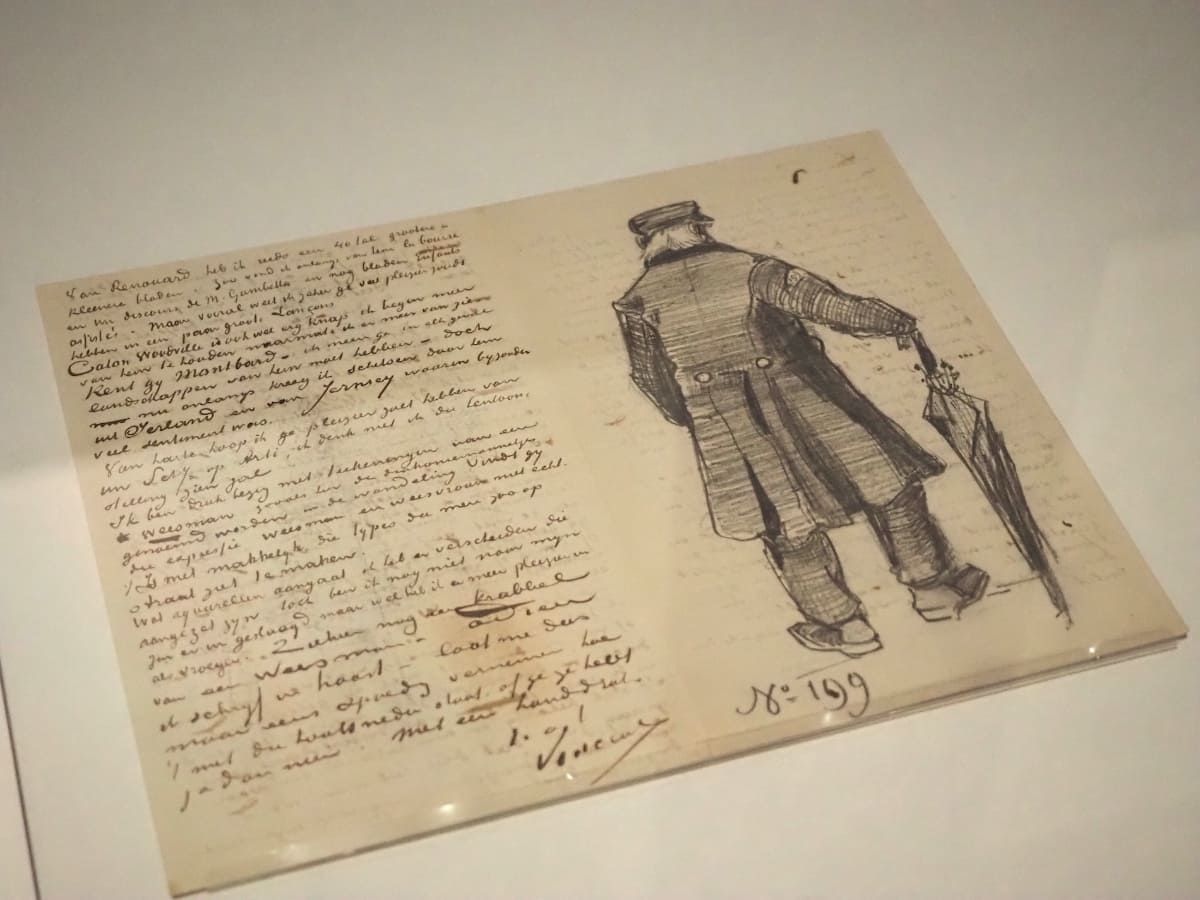 Van Renouard heb ik reeds een 40 tal grootere &
kleinere bladen. Zoo vond ik onlangs van hem la bourse
en un discours de M. Gambetta en nog bladen enfants
assistés. Maar vooral weet ik zeker ge veel pleizier zoudt
hebben in een paar groote Lançons
Caton Woodville is ook wel erg knap ik begin meer
van hem te houden naarmate ik er meer van zie
Kent gij Montbard – ik meen ge in elk geval
landschappen van hem moet hebben – doch
nu onlangs kreeg ik schetsen door hem
uit Ierland en van Jersey waarin byzonder
veel sentiment was.
Van harte hoop ik ge pleizier zult hebben van
Uw op Arti, ik denk niet ik die tentoon
stelling zien zal
Ik ben druk bezig met teekeningen van een
weesman zooals hier de diakoniemannetjes
genoemd worden in de wandeling Vindt gy
die expressie weesman en weesvrouw niet echt.
't Is niet makkelyk die types die men zoo op
straat ziet te maken.
Wat aquarellen aangaat ik heb er verscheiden die
aangezet zyn toch ben ik nog niet naar myn
zin er in geslaagd maar wel heb ik er meer pleizier in
als vroeger. Ziehier nog een krabbel
van een weesman – adieu
ik schryf in haast – laat me dees
maar eens spoedig vernemen hoe
't met die houtsneden staat of ge ze hebt
ja dan neen. Met een handdruk.
t. à t.
Vincent
No 199